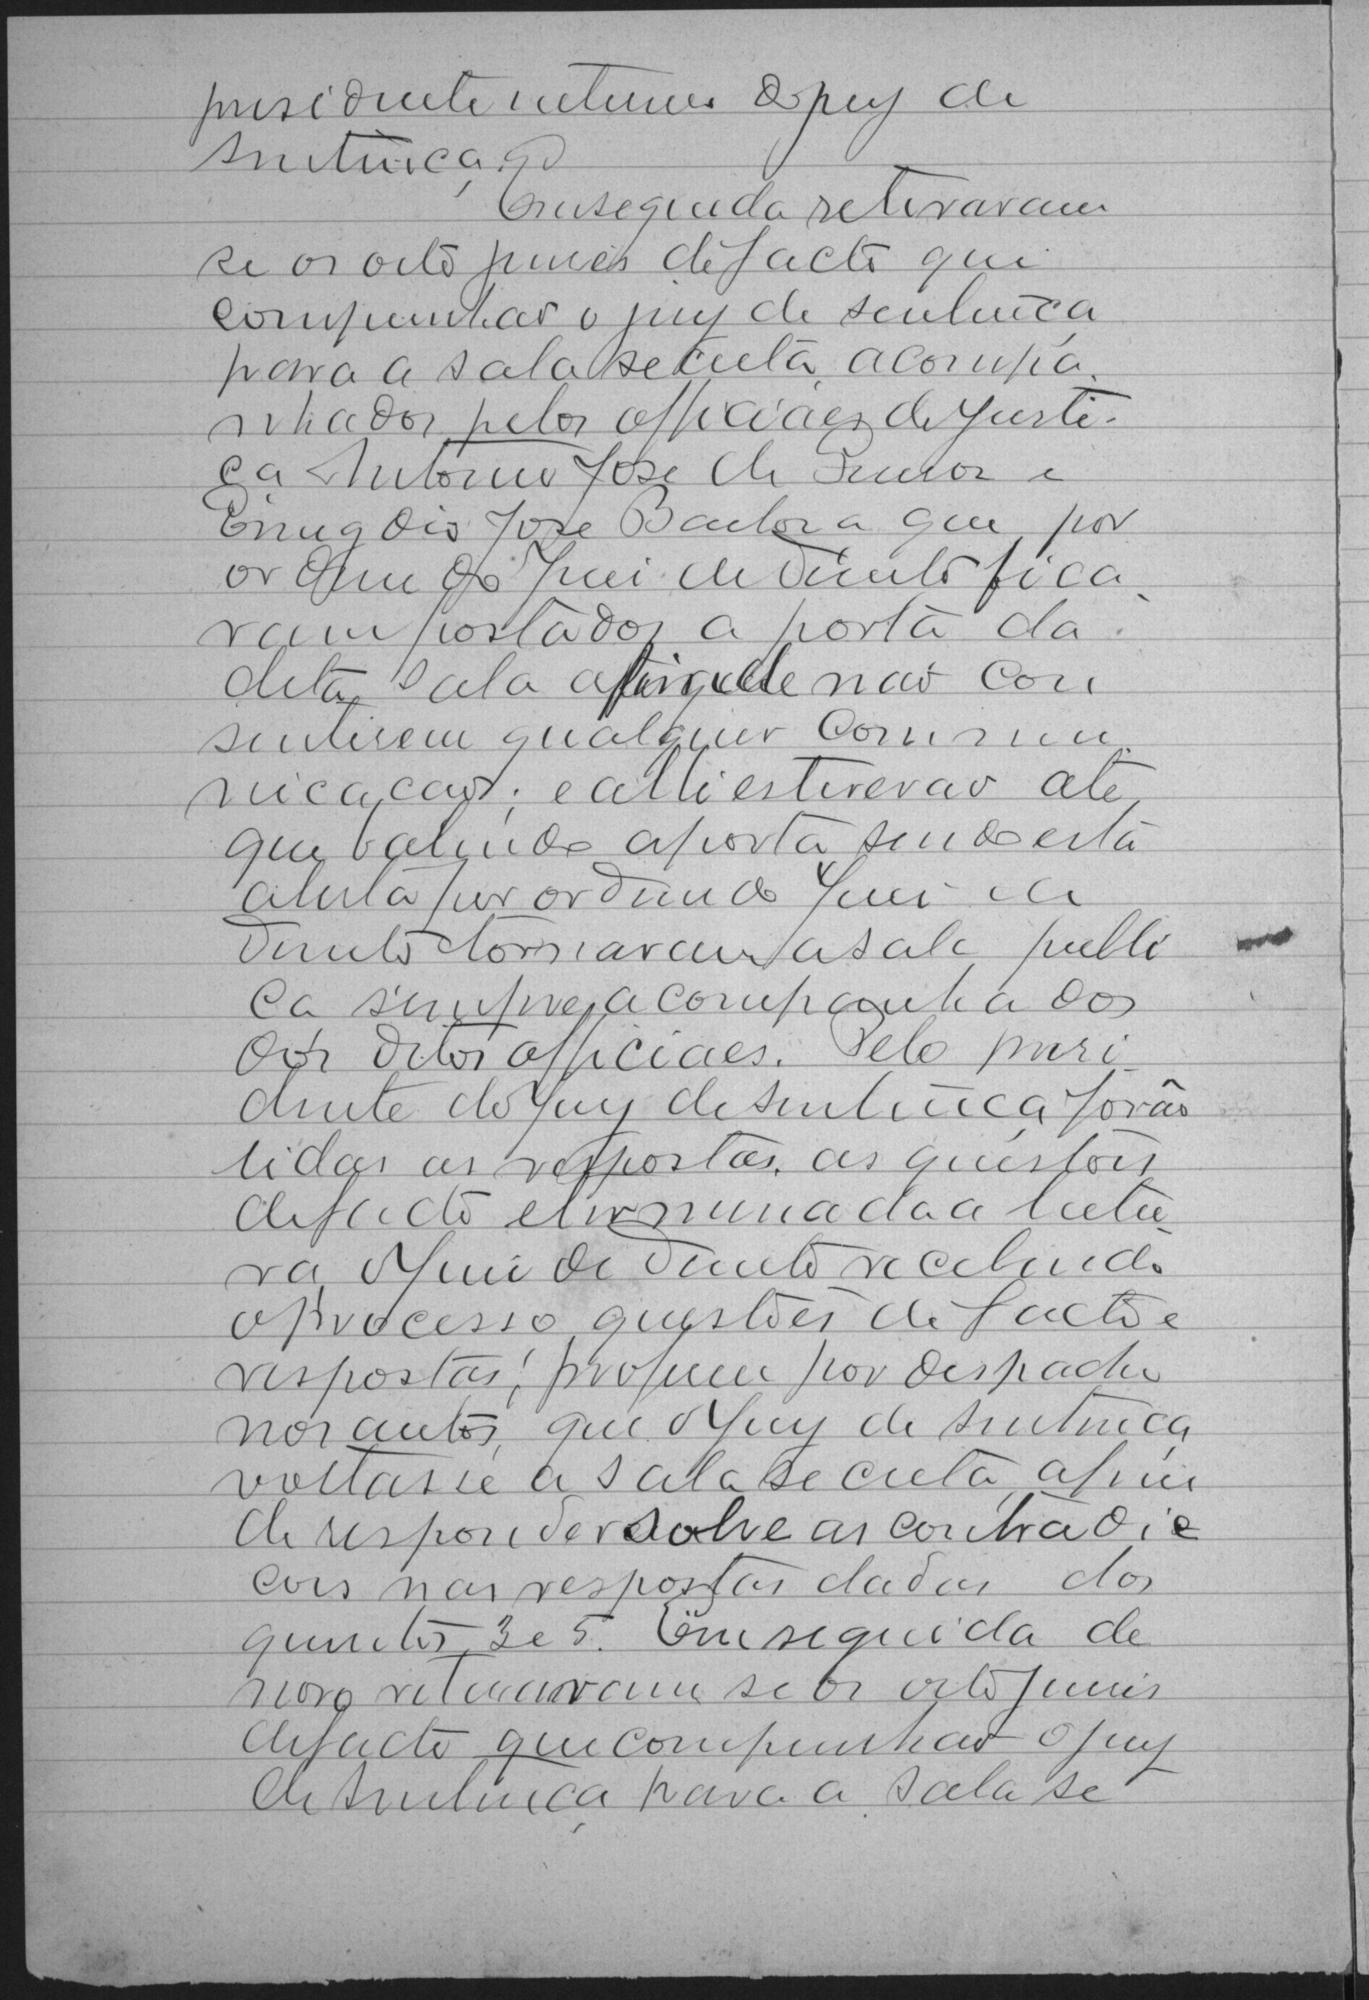 presidente interino do jury de
sentença.
Em seguida retiravam
se os oito juises de facto que
compunhão o jury de sentença
para a sala secreta, acompa
nhados pelos officiaes de Justi-
ça Antonio José de Lemos e
Emygdio José Barbosa que por
ordem do Juiz de Direito fica
ram postados a porta da
dita sala afim de não con
sentirem qualquer commu
nicação; e alli estiverão até
que batendo a porta sendo esta
aberta por ordem do Juiz de
Direito tornaram a sala publi
ca sempre acompanhados
dos ditos officiaes. Pelo presi
dente do Jury de sentença forão
lidas as respostas as questões
de facto e terminada a leitu
ra, o Juiz de Direito recebendo
o processo, questões de facto e
respostas, propoz por despacho
nos autos, que o Jury de sentença
voltasse a sala secreta, afim
de responder sobre as contradic
ções nas respostas dadas dos
quesitos 3 e 5. Em seguida de
novo retiraram se os oito Juises
de facto que compunhão o jury
de sentença para a sala se